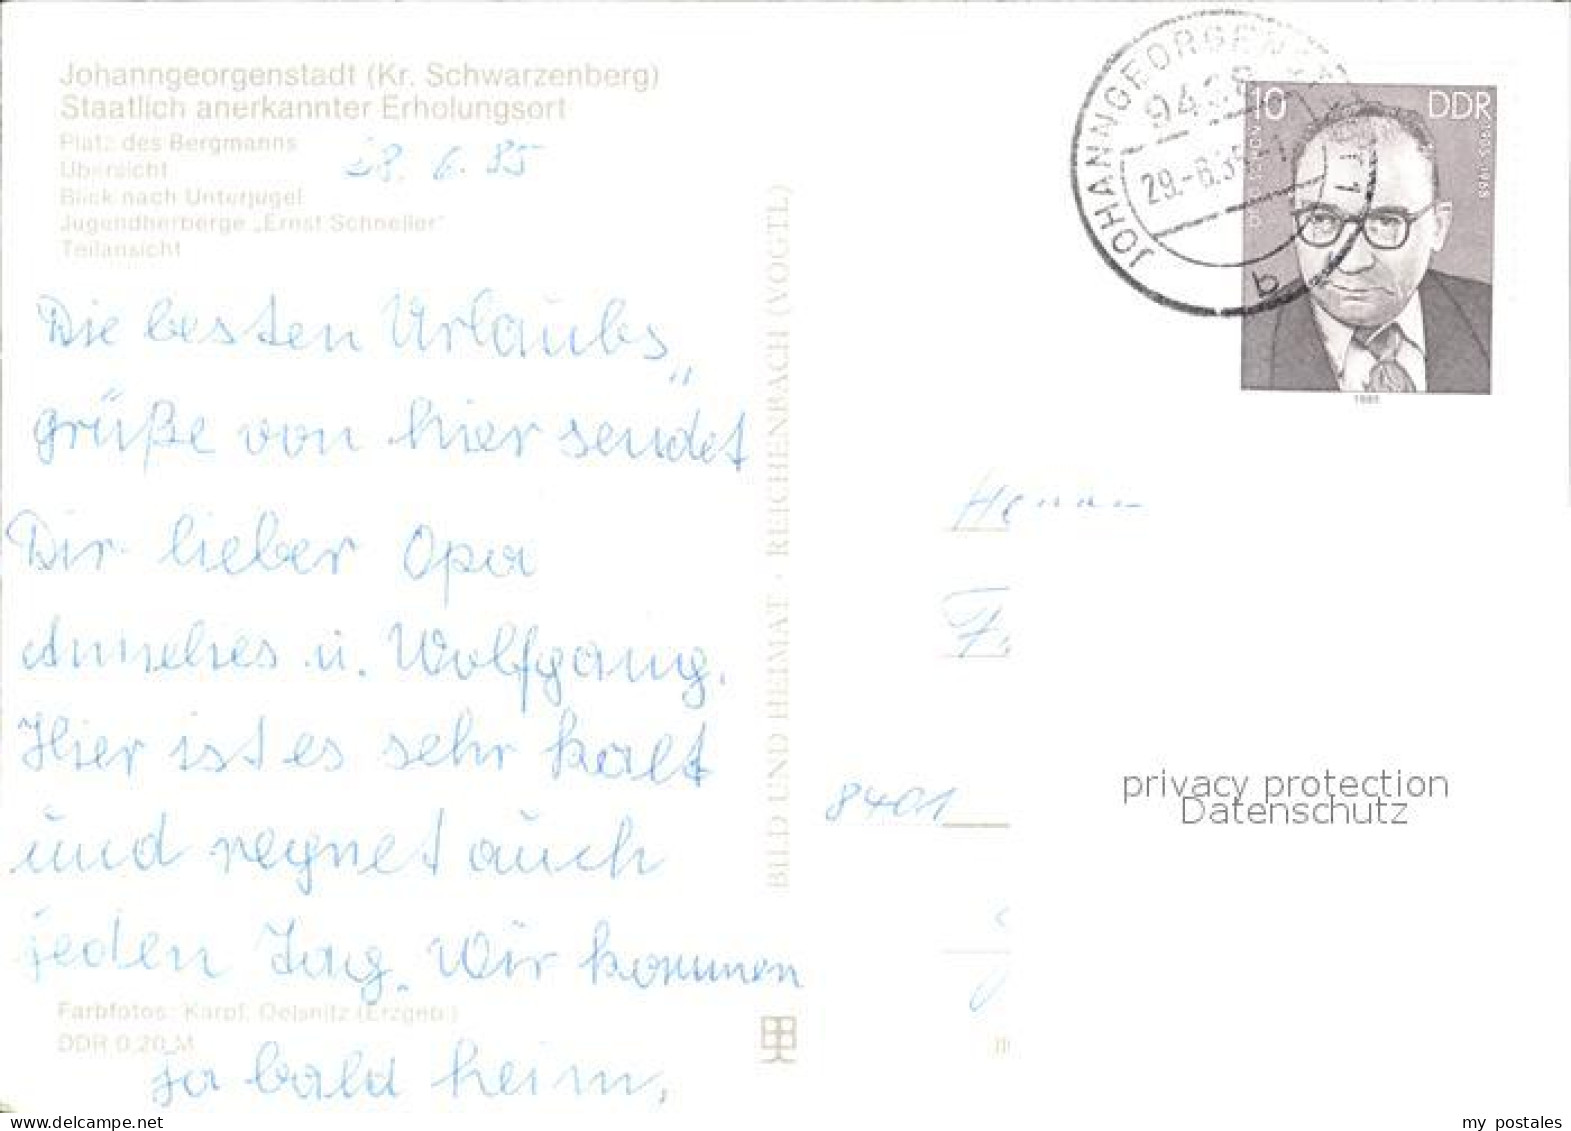 Johanngeorgenstadt (Kr. Schwarzenberg)
Staatlich anerkannter Erholungsort
Platz des Bergmanns
Übersicht
Blick nach Unterjugel
Jugendherberge „Ernst Schneller"
Teilansicht
28. 6. 85
Die besten Urlaubs„
grüße von hier sendet
Dir lieber Opa
Annelies u. Wolfgang.
Hier ist es sehr kalt
und regnet auch
jeden Tag. Wir kommen
ja bald heim,
Farbfotos: Karpf, Oelsnitz (Erzgeb.)
DDR 0,20 M
BILD UND HEIMAT · REICHENBACH (VOGTL)
JOHANNGEORGENSTADT 1
29.-6.
b
10
DDR
1905-1968
1985
Herrn
F
8401
privacy protection
Datenschutz
www.delcampe.net
my postales